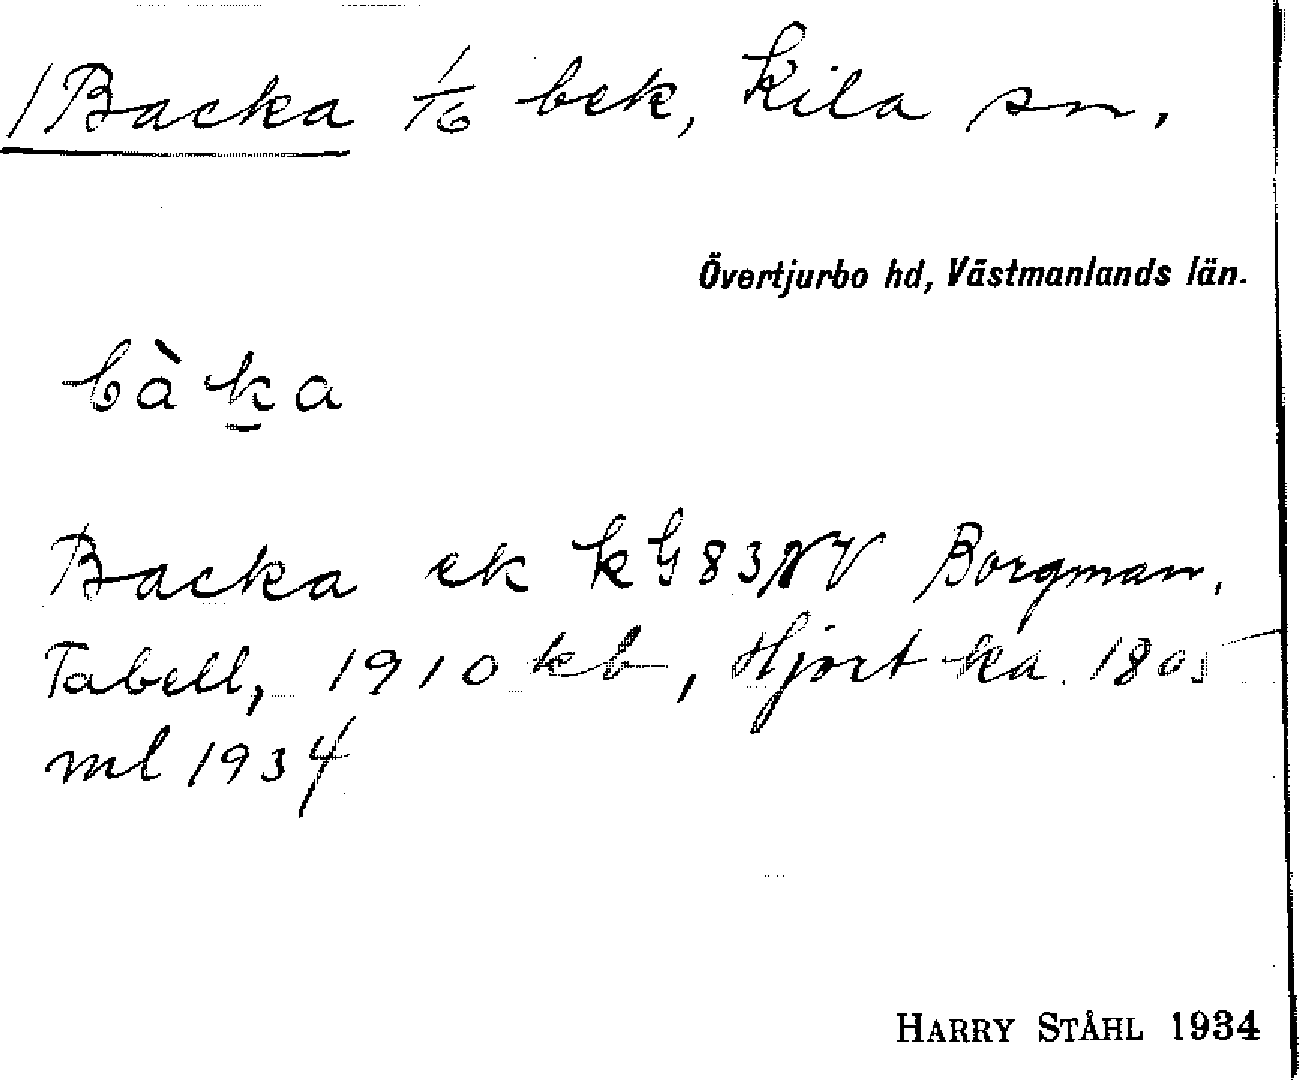 /Backa 1/6 bek, Kila sn.
Övertjurbo hd, Västmanlands län.
bàk̠a
Backa ek k G 83 NV Borgman,
Tabell, 1910 kb, Hjort ka. 1805
ml 1934
HARRY STÅHL 1934